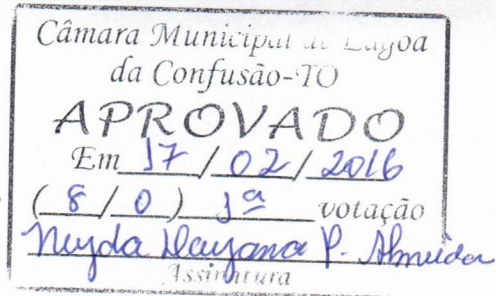 Câmara Municipal de Lagoa
da Confusão-TO
APROVADO
Em 17 / 02 / 2016
( 8 / 0 ) 1ª votação
Dayana P. Almeida
Assinatura